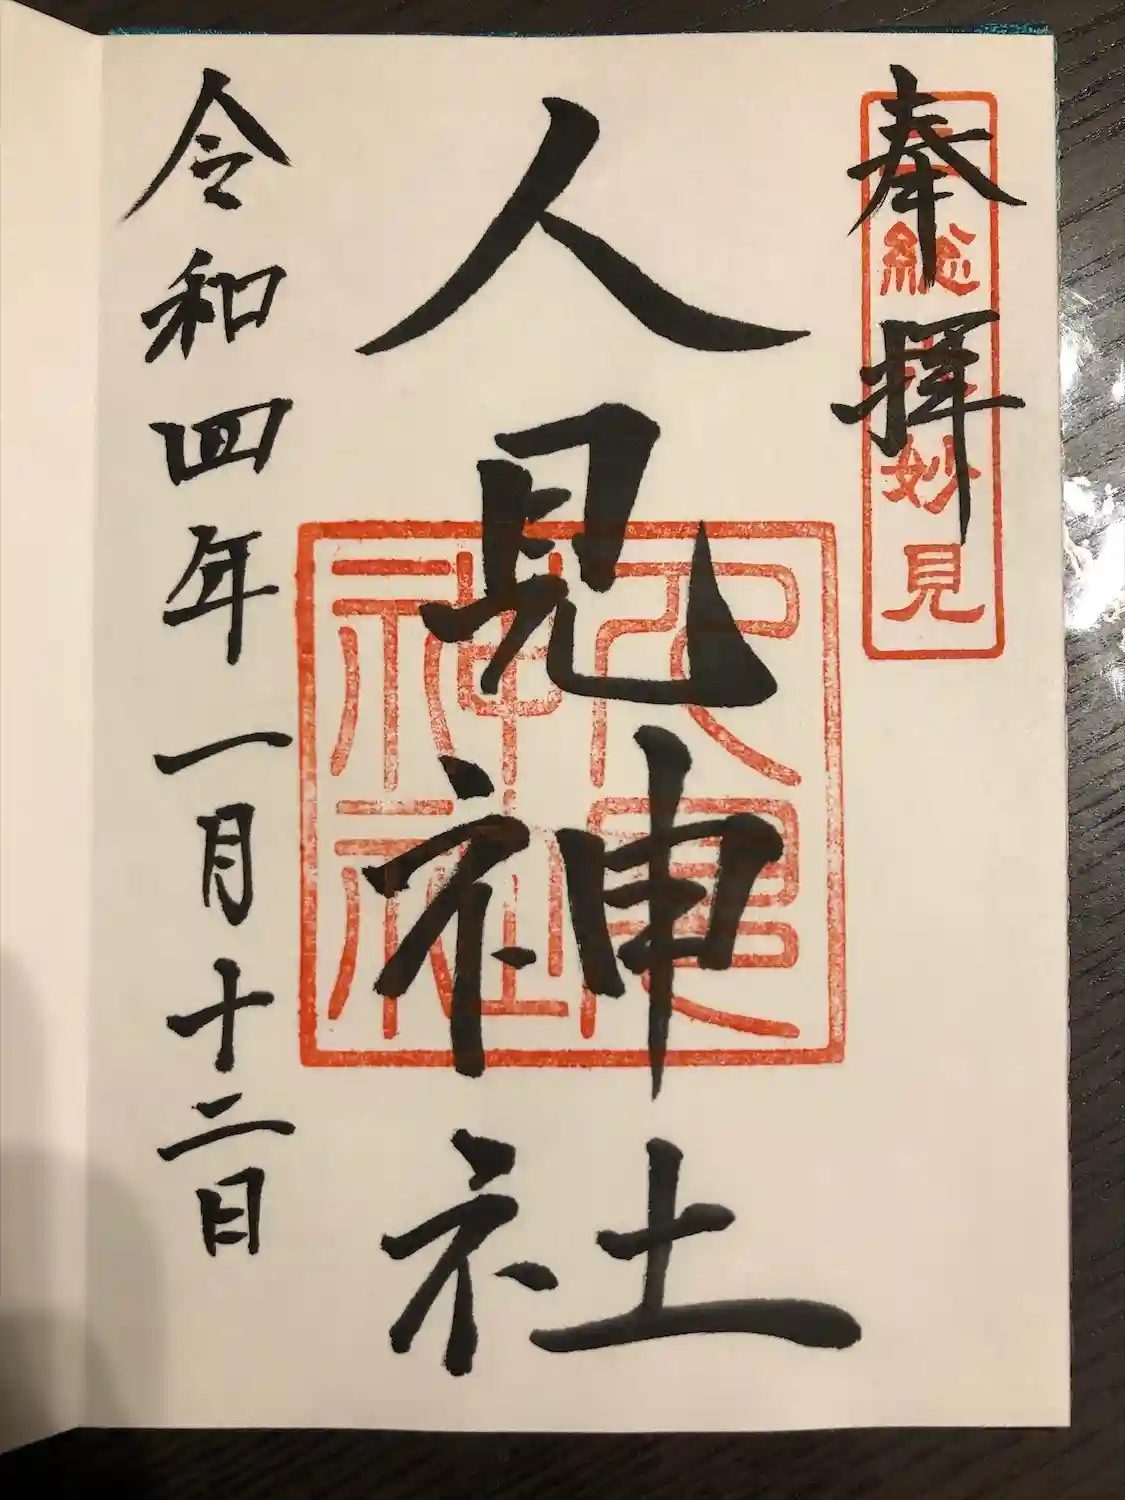 奉拝
上総 妙見
人見神社
人見神社
令和四年一月十二日